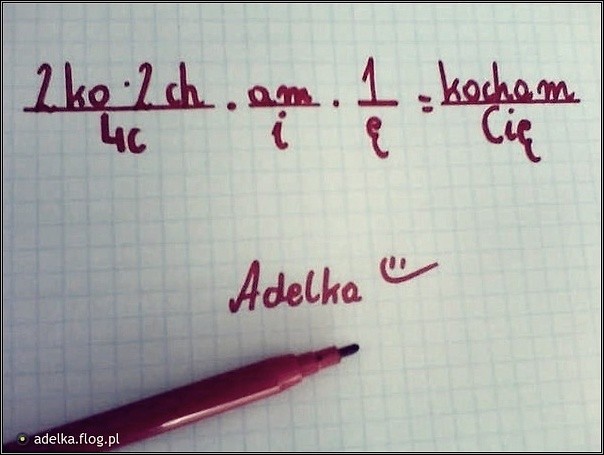 2ko · 2ch / 4c · am / i · 1 / ę = kocham / Cię
Adelka
adelka.flog.pl